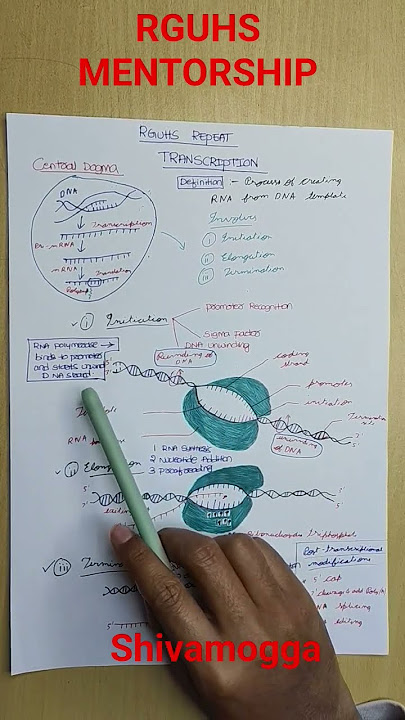 RGUHS
MENTORSHIP
RGUHS REPEAT
TRANSCRIPTION
Central Dogma
DNA
Transcription
mRNA
Translation
Definition - Process of creating
RNA from DNA template
Involves
i Initiation
ii Elongation
iii Termination
i Initiation
Promoter Recognition
Sigma Factor
DNA unwinding
RNA Polymerase
binds to promoter
and starts
DNA strand
Rewinding of
DNA
coding
strand
promoter
initiation
unwinding
of DNA
RNA
ii Elongation
1 RNA Synthesis
2 Nucleotide Addition
3 Proofreading
5'
3'
3'
5'
Post-transcriptional
modifications
5' cap
splicing
editing
iii
Shivamogga